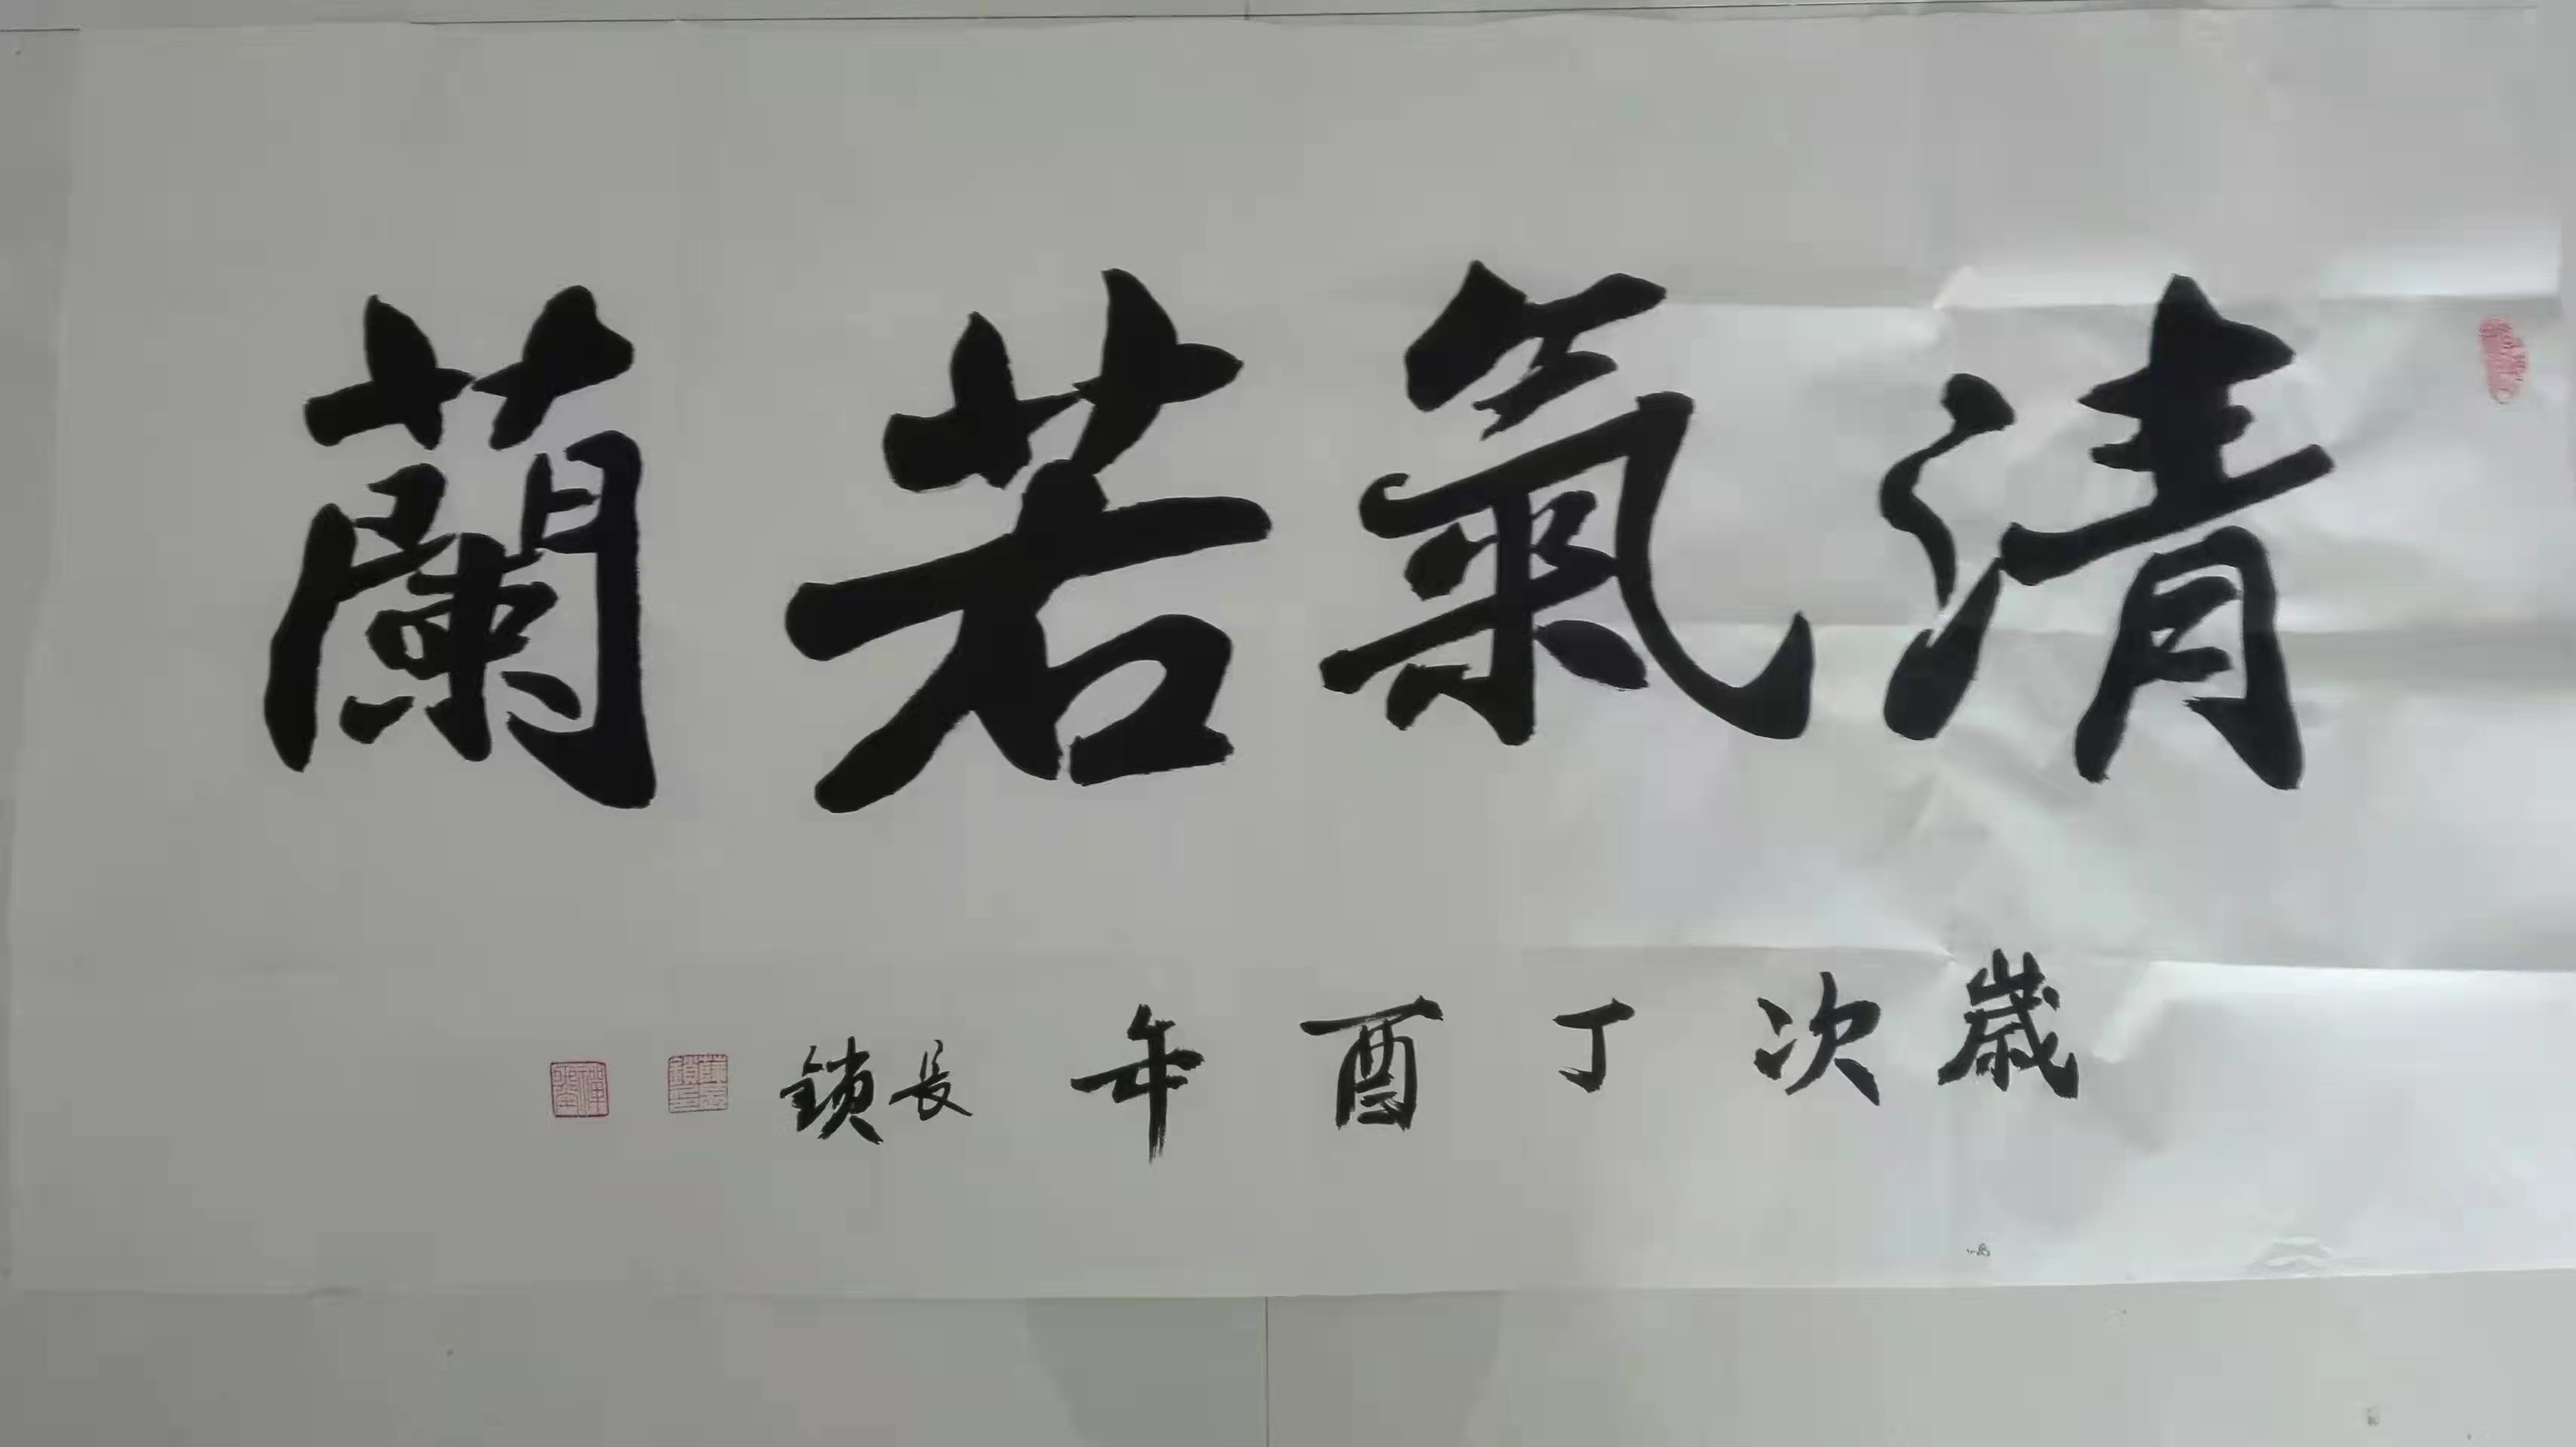 清氣若蘭
歲次丁酉年 長鎖